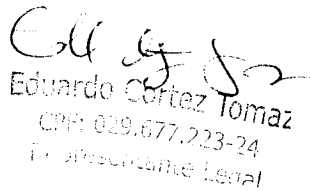 Eduardo Cortez Tomaz
CPF: 029.677.223-24
Representante Legal